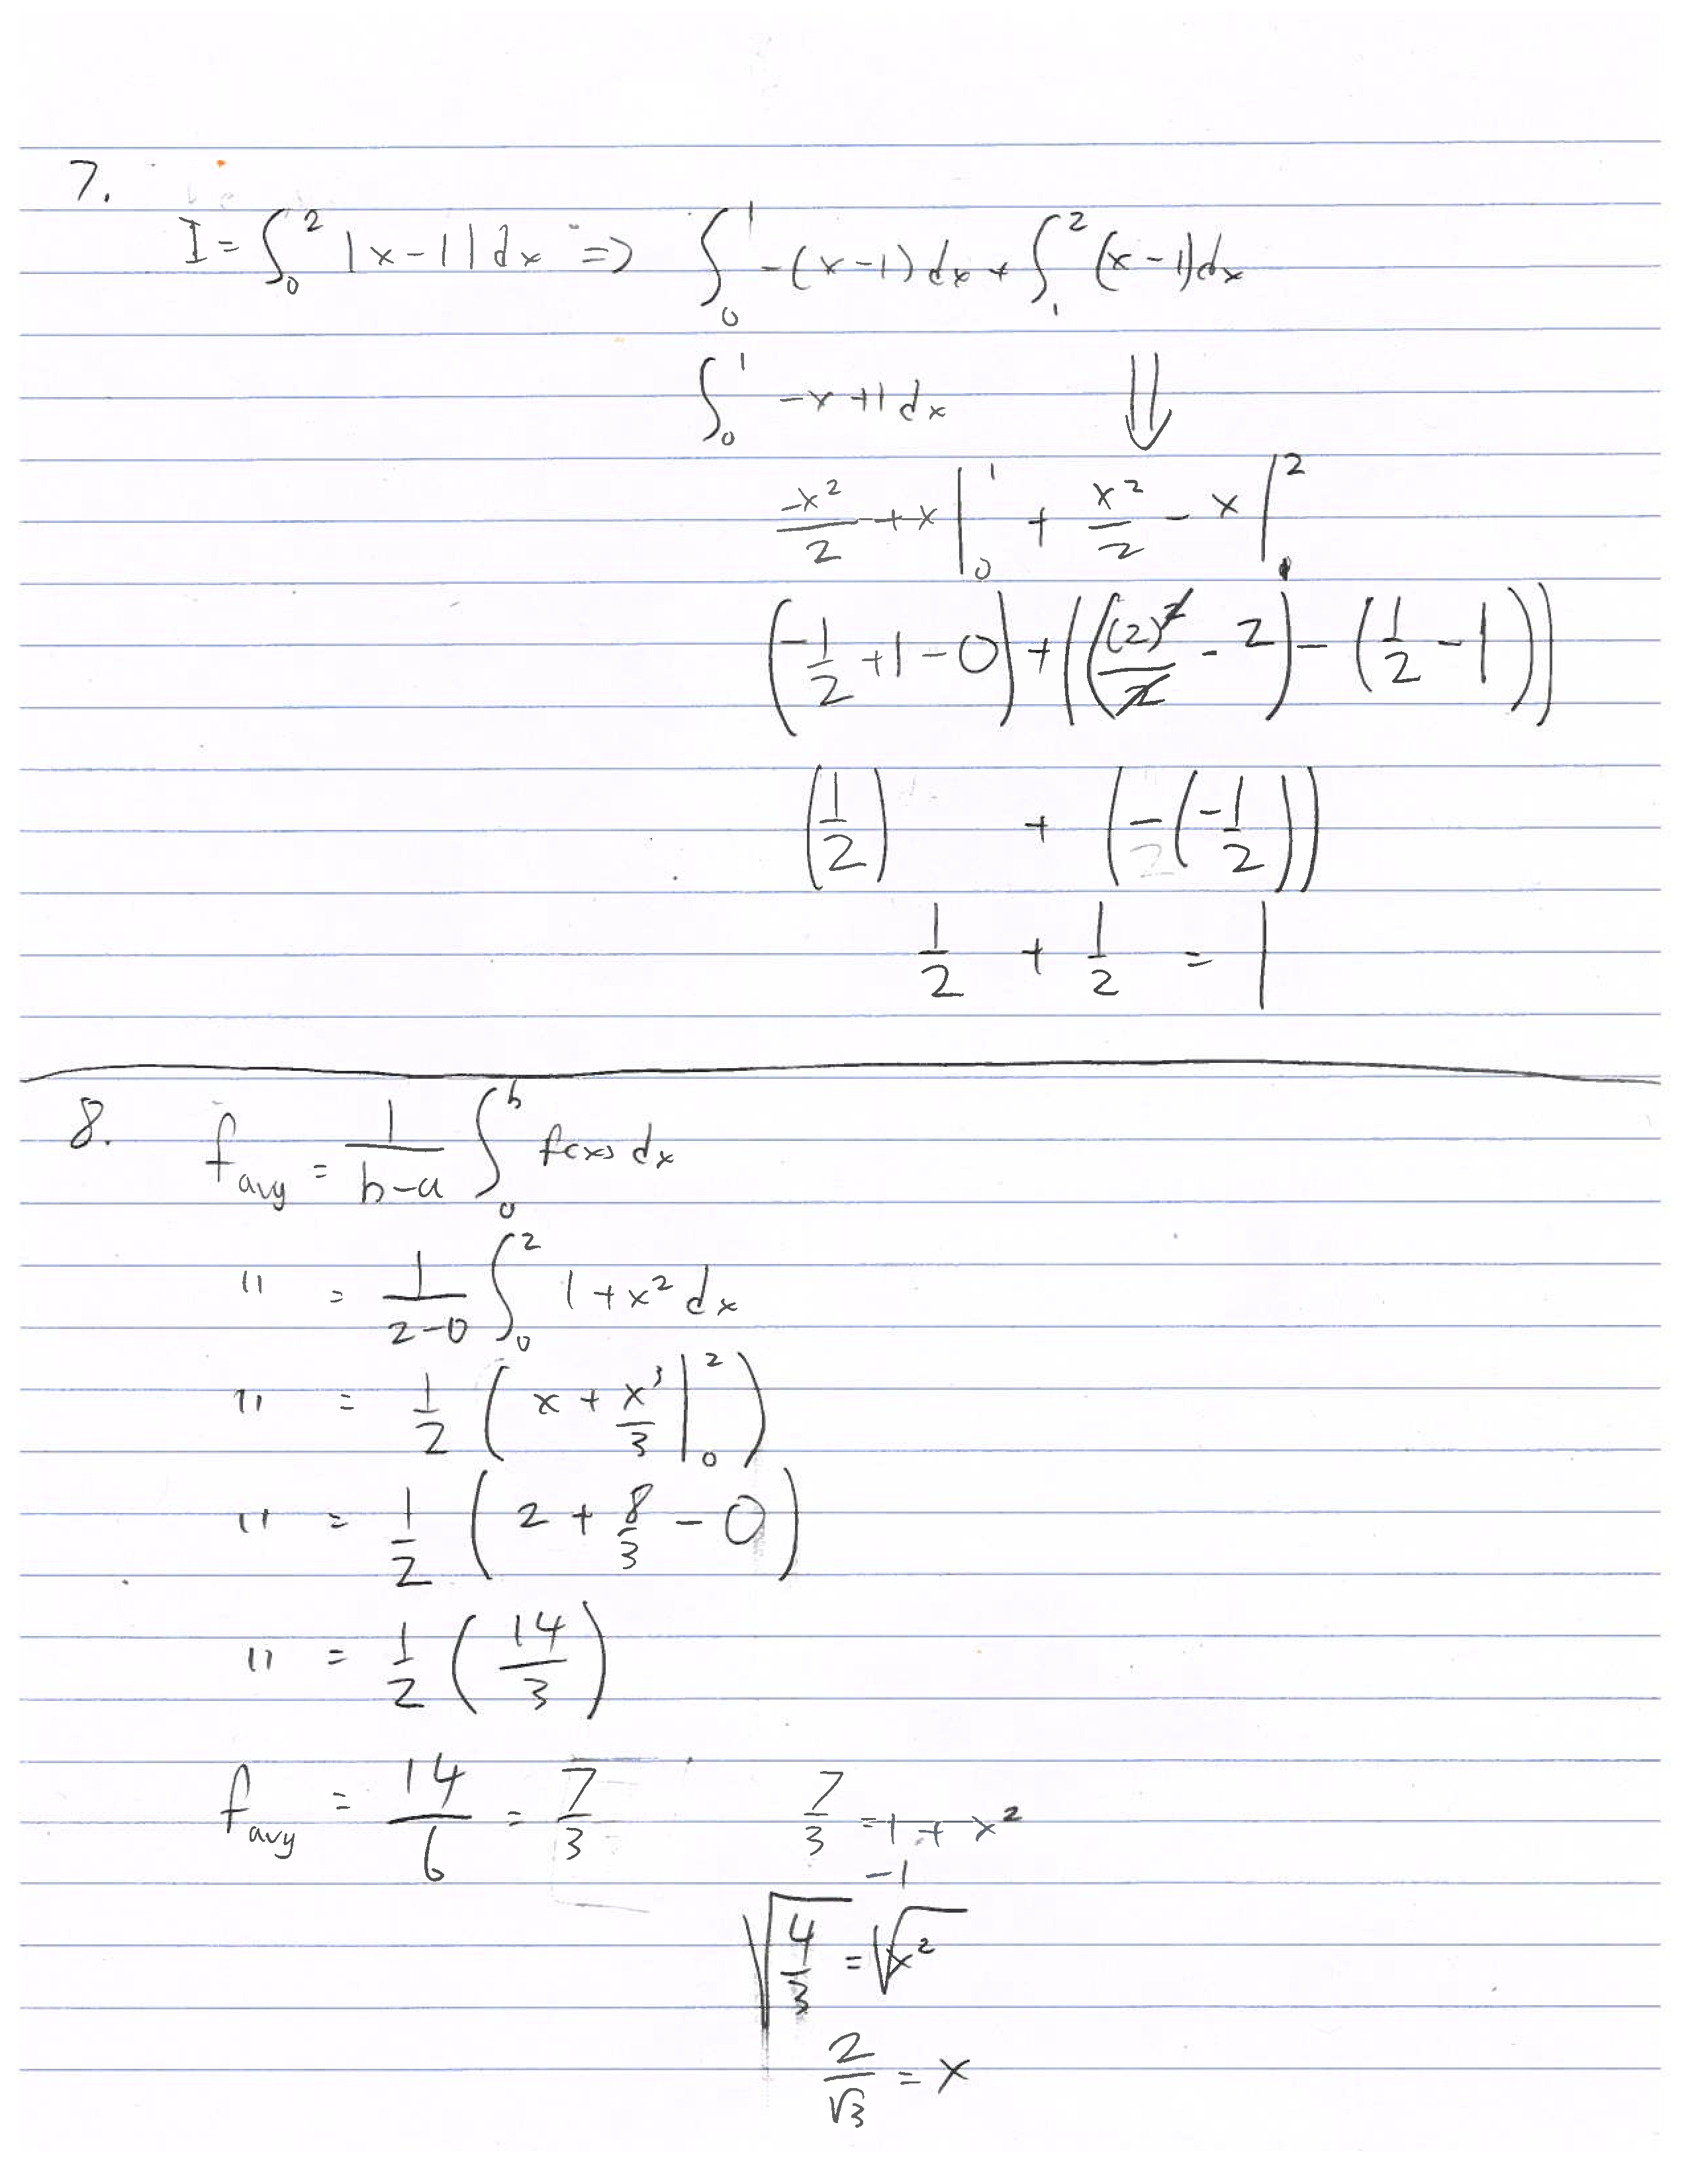 7.
I = ∫₀² |x-1| dx ⇒ ∫₀¹ -(x-1) dx + ∫₁² (x-1) dx
∫₀¹ -x+1 dx ⇓
-x²/2 + x |₀¹ + x²/2 - x |₁²
(-1/2 + 1 - 0) + (((2)²/2 - 2) - (1/2 - 1))
(1/2) + (-(-1/2))
1/2 + 1/2 = 1
8. f_avg = 1/(b-a) ∫₀ᵇ f(x) dx
" = 1/(2-0) ∫₀² 1+x² dx
" = 1/2 (x + x³/3 |₀²)
" = 1/2 (2 + 8/3 - 0)
" = 1/2 (14/3)
f_avg = 14/6 = 7/3 7/3 = 1 + x²
-1
√(4/3) = √x²
2/√3 = x